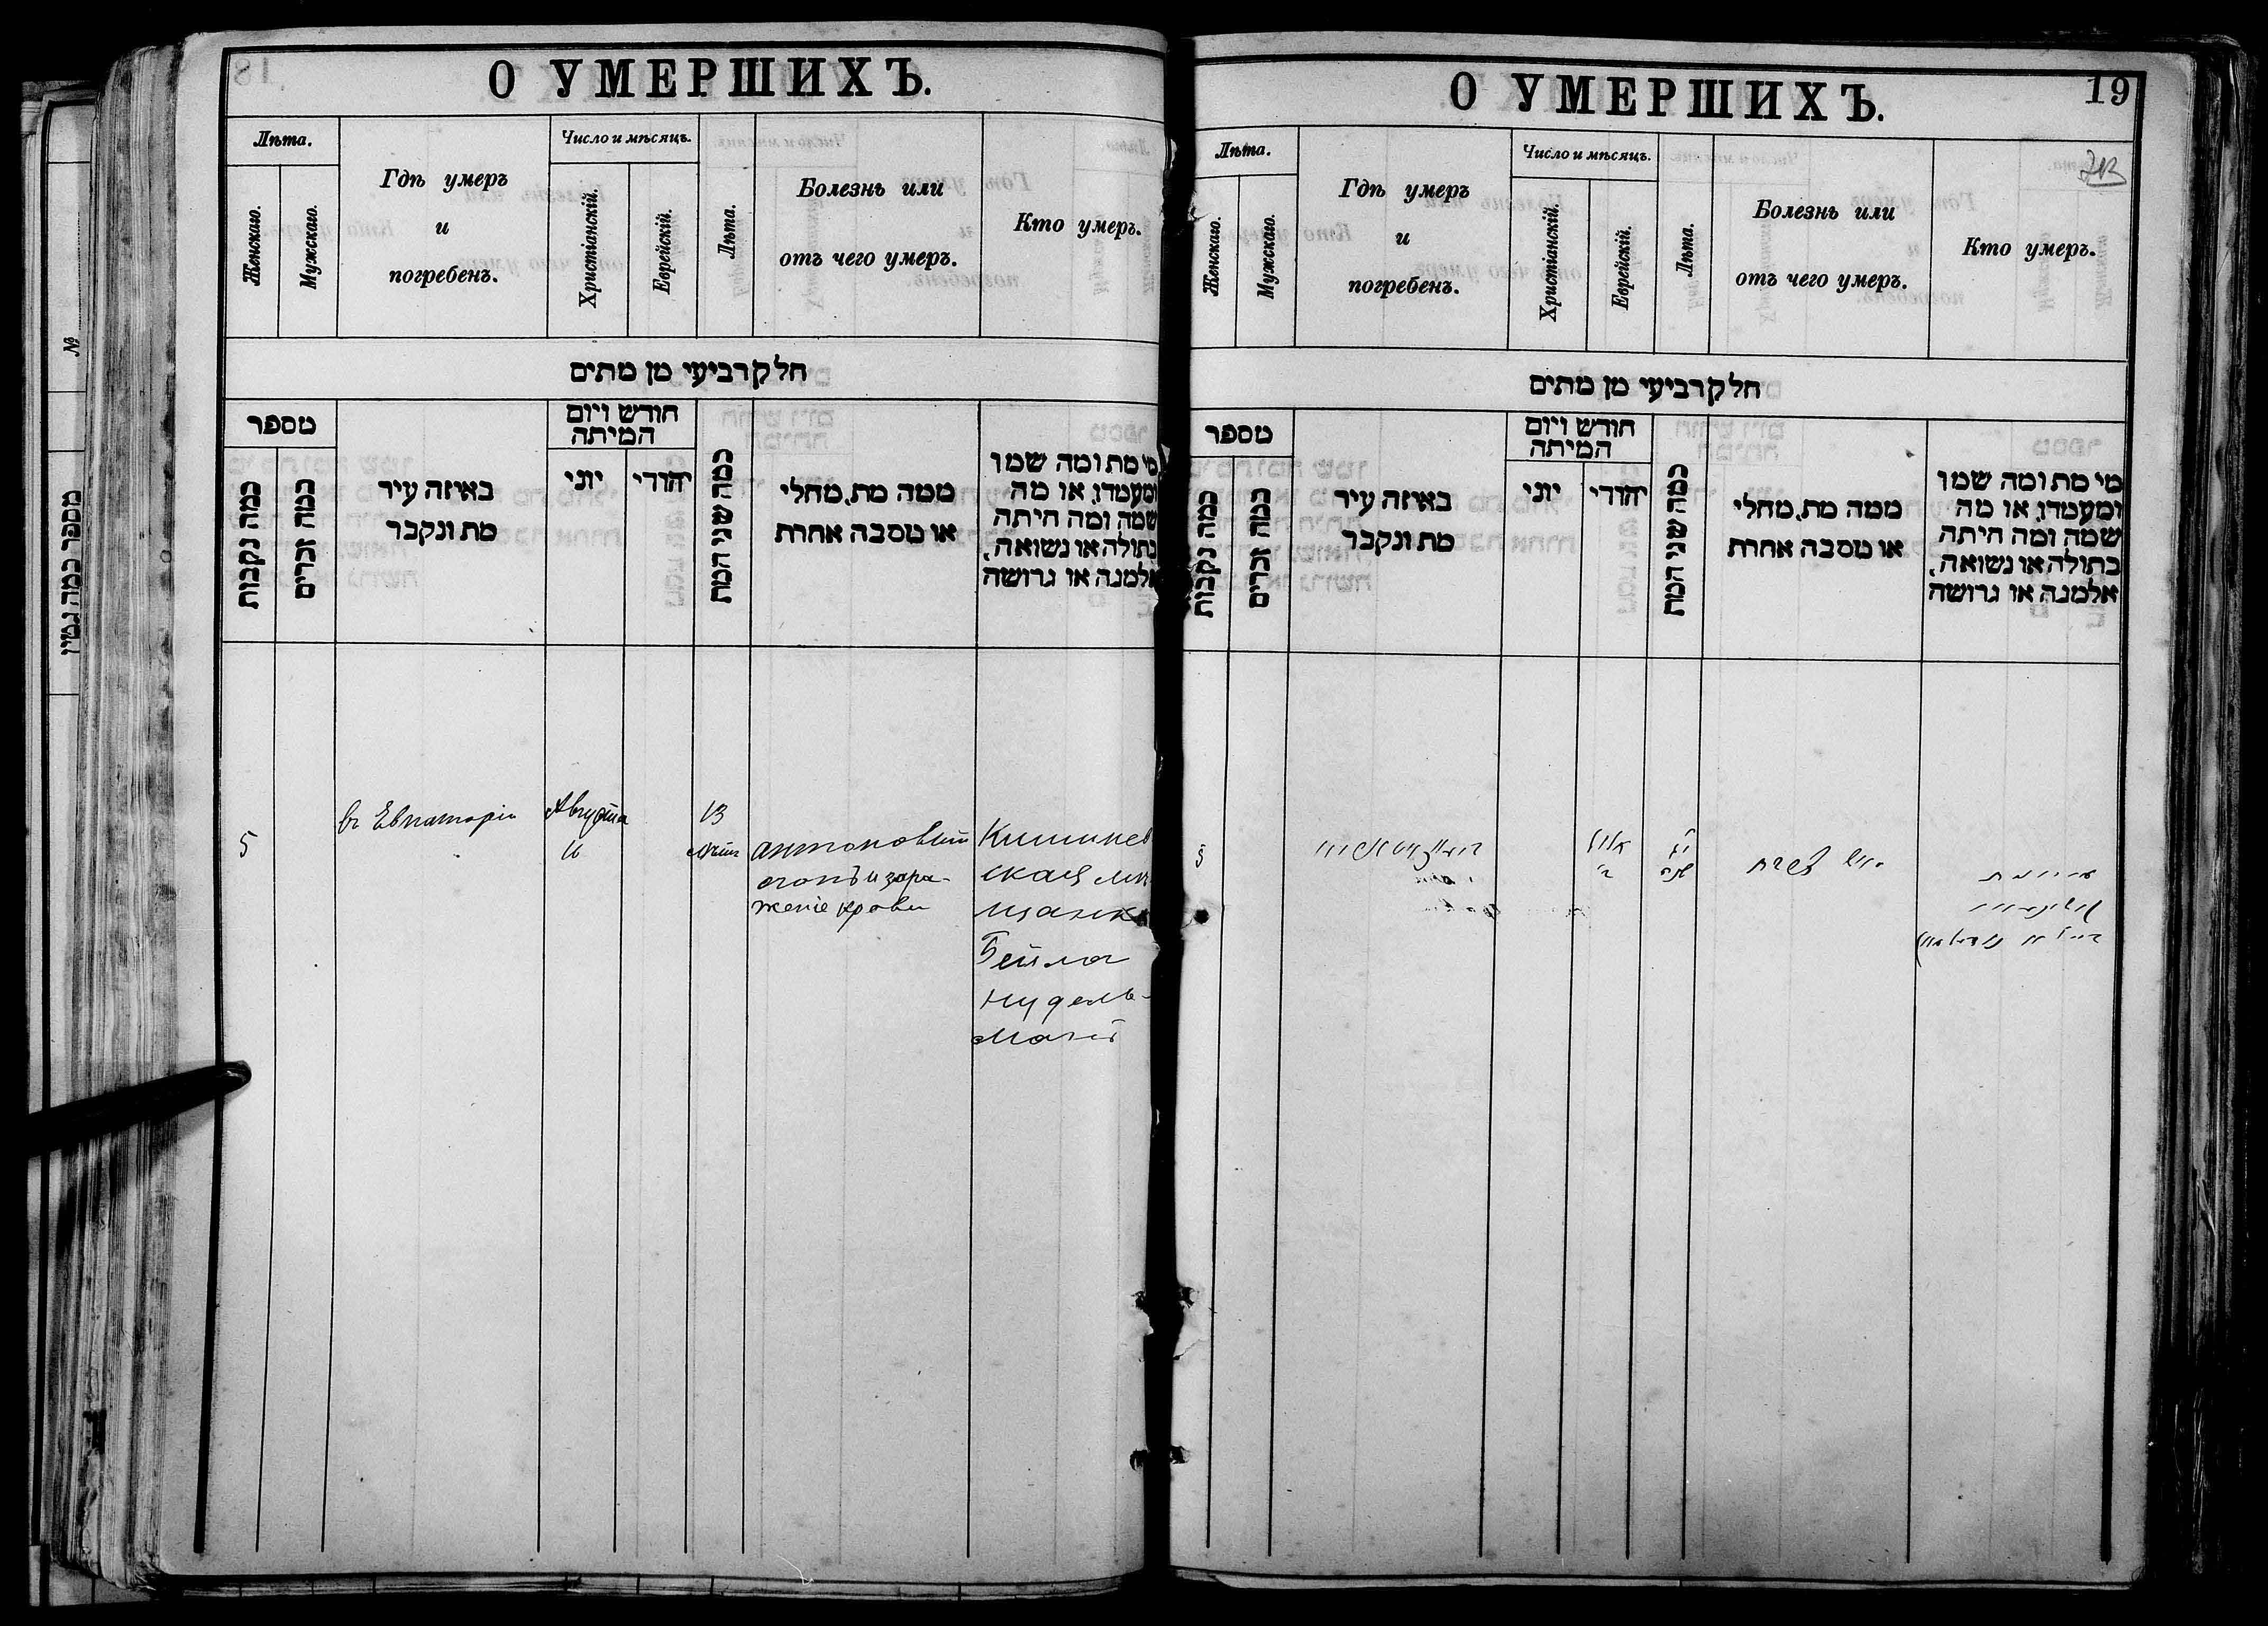 О УМЕРШИХЪ.
Лѣта.
Женскаго.
Мужскаго.
Гдѣ умеръ
и
погребенъ.
Число и мѣсяцъ.
Христіанскій.
Еврейскій.
Лѣта.
Болезнь или
отъ чего умеръ.
Кто умеръ.
חלק רביעי מן מתים
מספר
כמה נקבות
כמה זכרים
באיזה עיר
מת ונקבר
חודש ויום
המיתה
יוני
יהודי
כמה שני המת
ממה מת, מחלי
או מסבה אחרת
מי מת ומה שמו
ומעמדו, או מה
שמה ומה היתה
בתולה או נשואה,
אלמנה או גרושה
5
въ Евпаторіи
Августа
16
13
лѣтъ
антоновый
огонь и зара-
женіе крови
Кишинев
ская мѣ
щанка
Бейла
Нудель-
манъ
№
מספר כמה גטין
О УМЕРШИХЪ.
19
Лѣта.
Женскаго.
Мужскаго.
Гдѣ умеръ
и
погребенъ.
Число и мѣсяцъ.
Христіанскій.
Еврейскій.
Лѣта.
Болезнь или
отъ чего умеръ.
Кто умеръ.
חלק רביעי מן מתים
מספר
כמה נקבות
כמה זכרים
באיזה עיר
מת ונקבר
חודש ויום
המיתה
יוני
יהודי
כמה שני המת
ממה מת, מחלי
או מסבה אחרת
מי מת ומה שמו
ומעמדו, או מה
שמה ומה היתה
בתולה או נשואה,
אלמנה או גרושה
5
אלול
יג
שנה